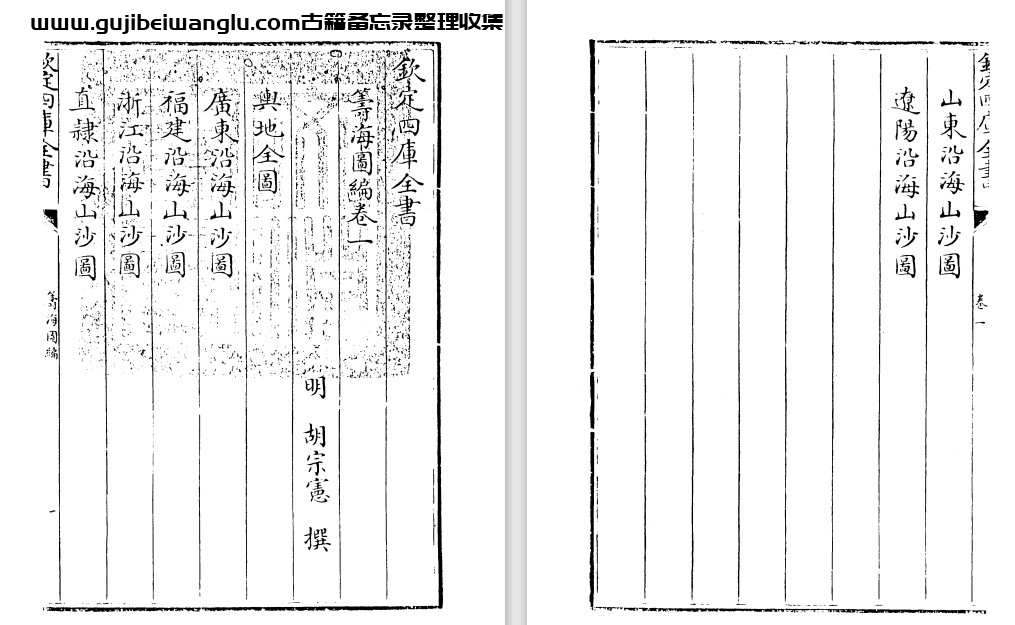 www.gujibeiwanglu.com古籍备忘录整理收集
欽定四庫全書
籌海圖編卷一
明 胡宗憲 撰
輿地全圖
廣東沿海山沙圖
福建沿海山沙圖
浙江沿海山沙圖
直隸沿海山沙圖
欽定四庫全書
籌海圖編
一
欽定四庫全書
卷一
山東沿海山沙圖
遼陽沿海山沙圖